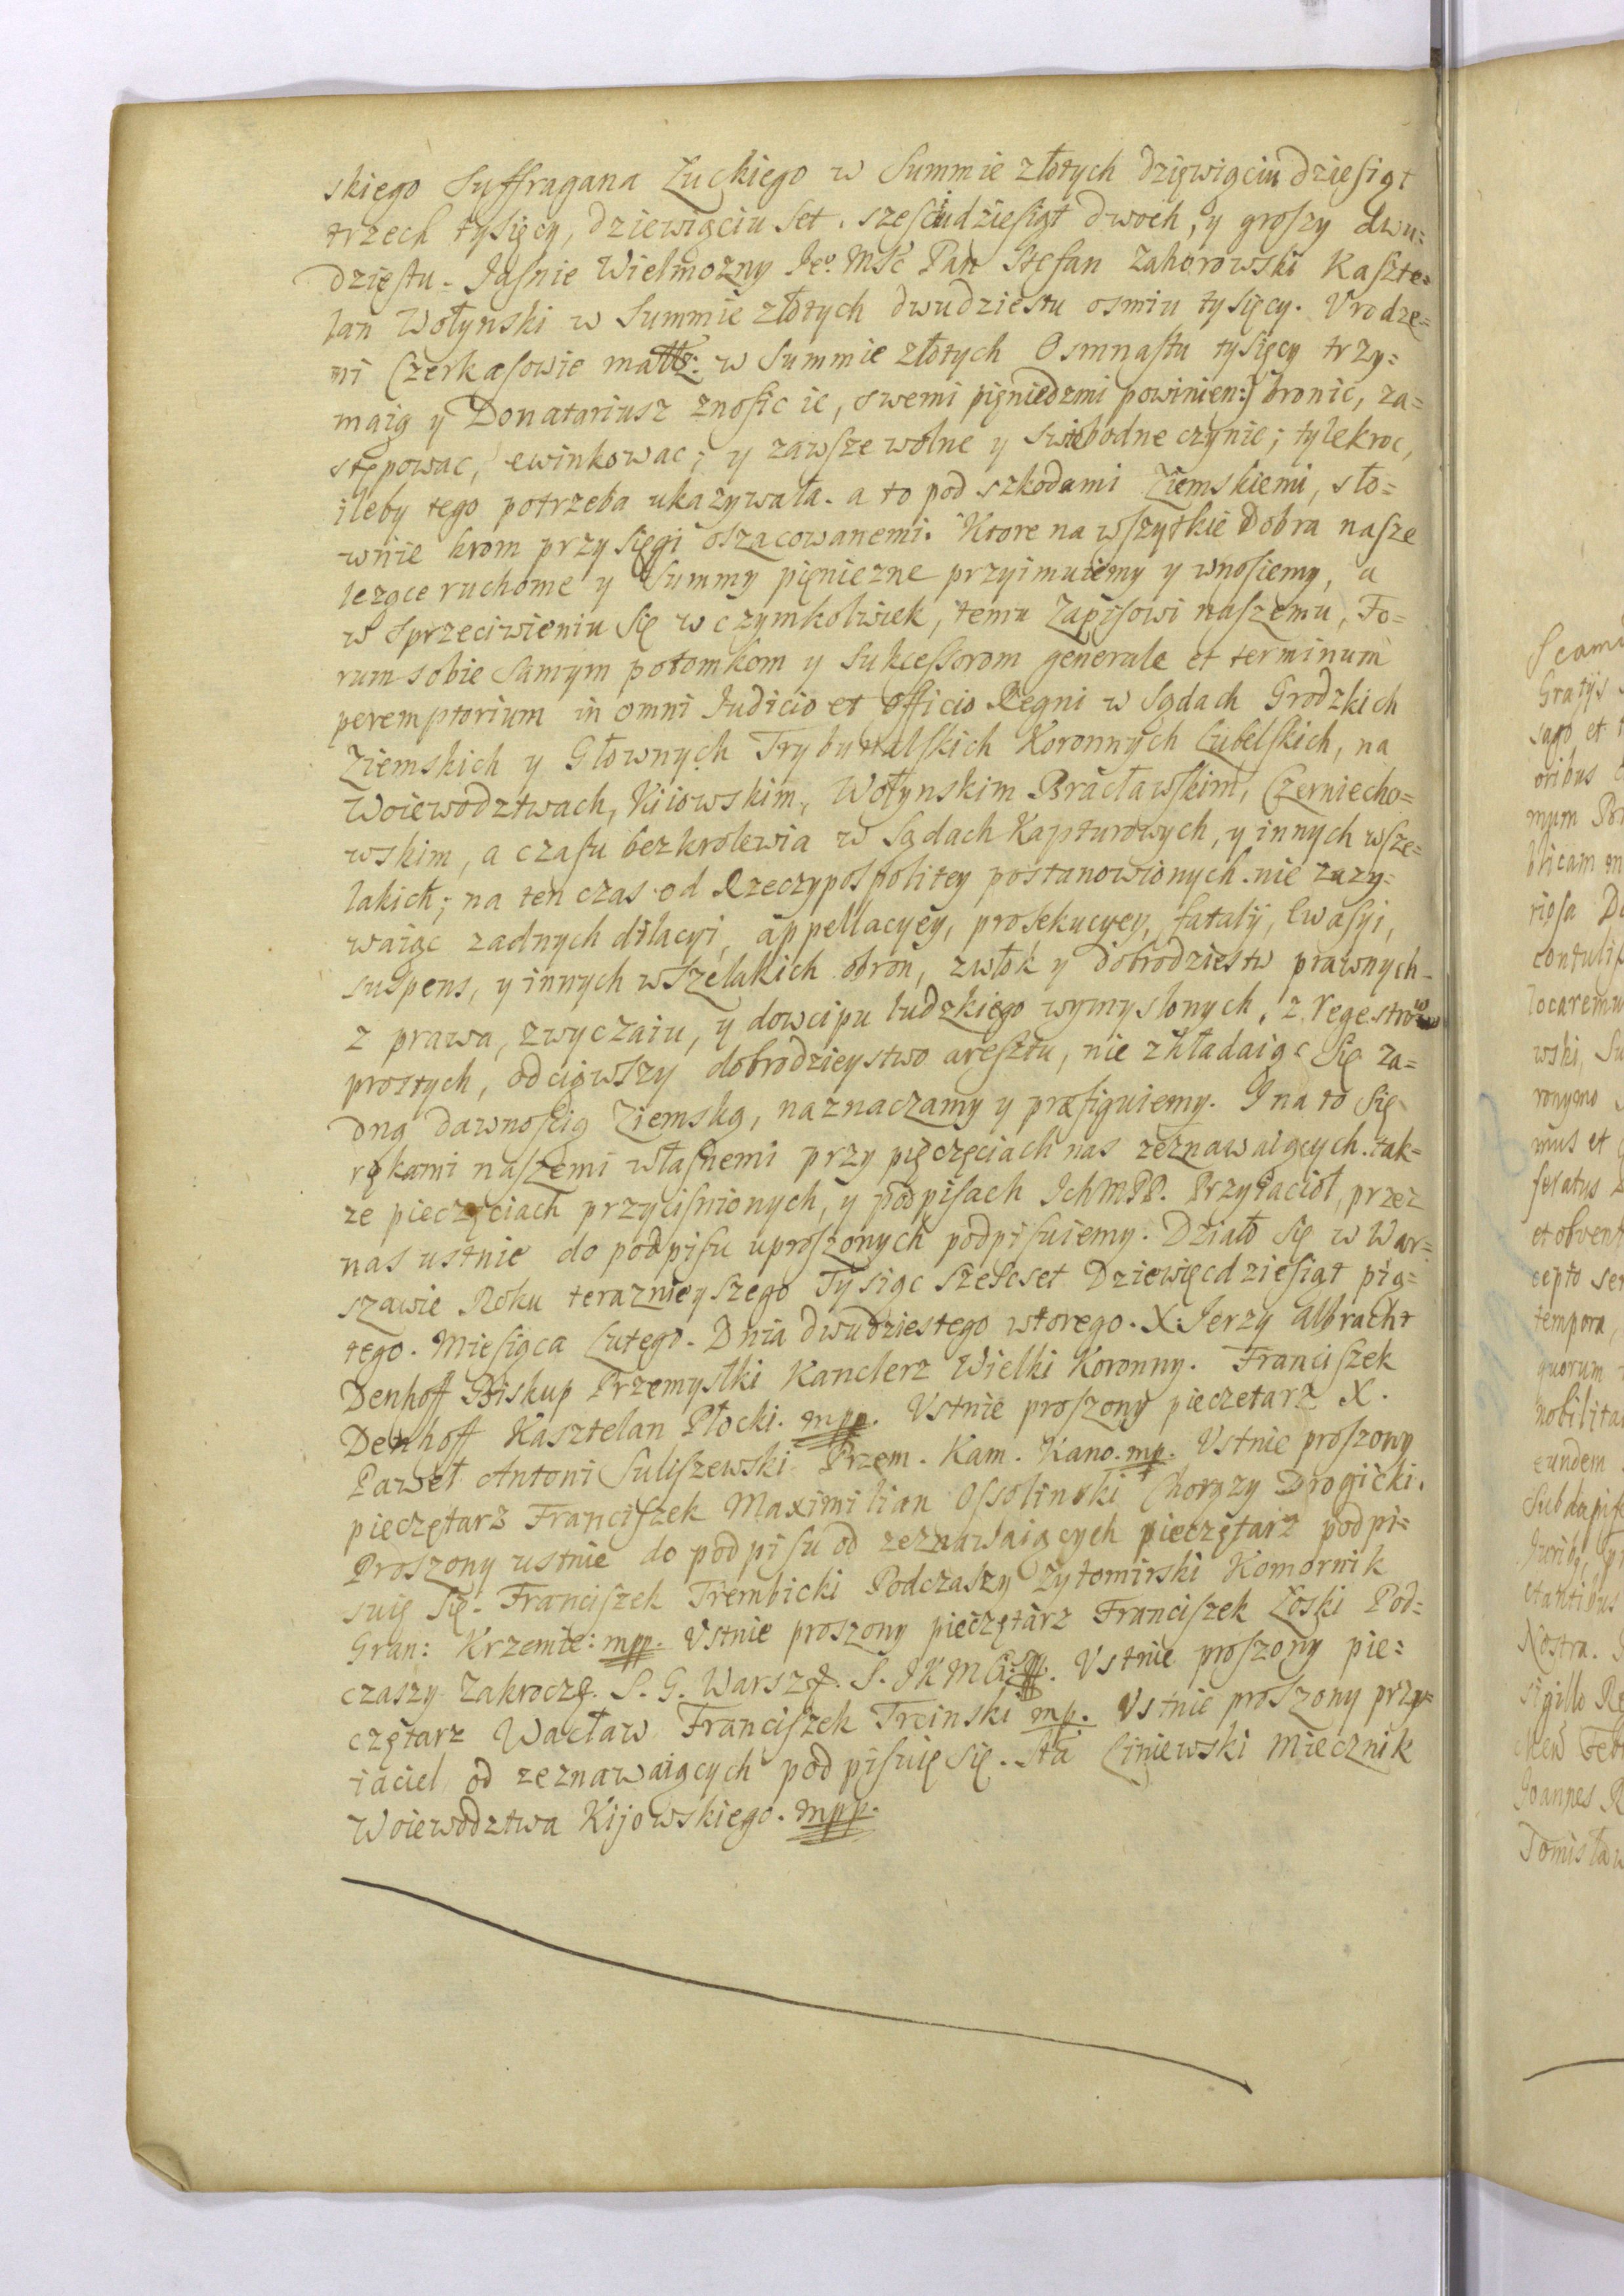 skiego Suffragana Łuckiego w Summie złotych dziewięciu dziesiąt
trzech tysięcy, dziewięciu set. sześciudziesiąt dwoch, y groszy dwu=
dziestu. Jaśnie Wielmożny Jeº Mść Pan Stefan Zahorowski Kaszte=
lan Wołynski w Summie złotych dwudziestu osmiu tysięcy. Vrodze=
ni Czerkasowie małż: w Summie złotych Osmnastu tysięcy trzy=
maią y Donatariusz znosic ie, swemi pięniedzmi powinien:) bronić, za=
stępowac, ewinkowac; y zawsze wolne y swobodne czynic; tylekroc,
ileby tego potrzeba ukazywała. a to pod szkodami Ziemskiemi, sło=
wnie krom przysięgi oszacowanemi. Ktore na wszytkie Dobra nasze
lezące ruchome y Summy pięniezne przyimuiemy y wnosiemy, a
w sprzeciwieniu się w czymkolwiek, temu Zapisowi naszemu, Fo=
rum sobie Samym potomkom y Sukcessorom generale et terminum
peremptorium in omni Judicio et officio Regni w Sądach Grodzkich
Ziemskich y Głownych Trybunalskich Koronnych Lubelskich, na
Woiewodztwach, Kiiowskim, Wołynskim Bracławskim, Czerniecho=
wskim, a czasu bezkrolewia w Sądach Kapturowych, y innych wsze=
lakich; na ten czas od Rzeczypospolitey postanowionych. nie zazy=
waiąc zadnych dilacyi, appellacyey, prosekucyey, fataly, Ewasyi,
suspens, y innych wszelakich obron, zwłok y dobrodziestw prawnych
z prawa, zwyczaiu, y dowcipu ludzkiego wymyslonych, z Regestrow
prostych, odciąwszy dobrodzieystwo aresztu, nie zkładaiąc się za=
dną dawnością Ziemską, naznaczamy y prefiguiemy. I na to Się
rękami naszemi własnemi przy pięczęciach nas zeznawaiących. tak=
ze pieczęciach przyciśnionych, y podpisach IchMPP. Przyiacioł, przez
nas ustnie do podpisu uproszonych podpisuiemy. Działo się w War=
szawie Roku teraznieyszego Tysiąc Sześcset Dziewięcdziesiąt pią=
tego. Miesiąca Lutego. Dnia dwudziestego wtorego. X. Jerzy Albracht
Denhoff Biskup Przemyslki Kanclerz Wielki Koronny. Franciszek
Denhoff Kasztelan Płocki. mpp. Vstnie proszony pieczetarz X.
Paweł Antoni Suliszewski Przem. Kam. Kano. mp. Vstnie proszony
pieczętarz Franciszek Maximilian Ossolinski Chorązy Drogicki.
Proszony ustnie do podpisu od zeznawaiących pieczętarz podpi=
suię się. Franciszek Trembicki Podczaszy Zytomirski Komornik
Gran: Krzemie: mpp. Vstnie proszony pieczętarz Franciszek Łoski Pod=
czaszy Zakroczę. S. G. Warszę. S. JKM Vstnie proszony pie=
czętarz Wacław Franciszek Trcinski mp. Vstnie proszony przy=
iaciel od zeznawaiących podpisuię się. Liniewski Miecznik
Woiewodztwa Kijowskiego. mpp.